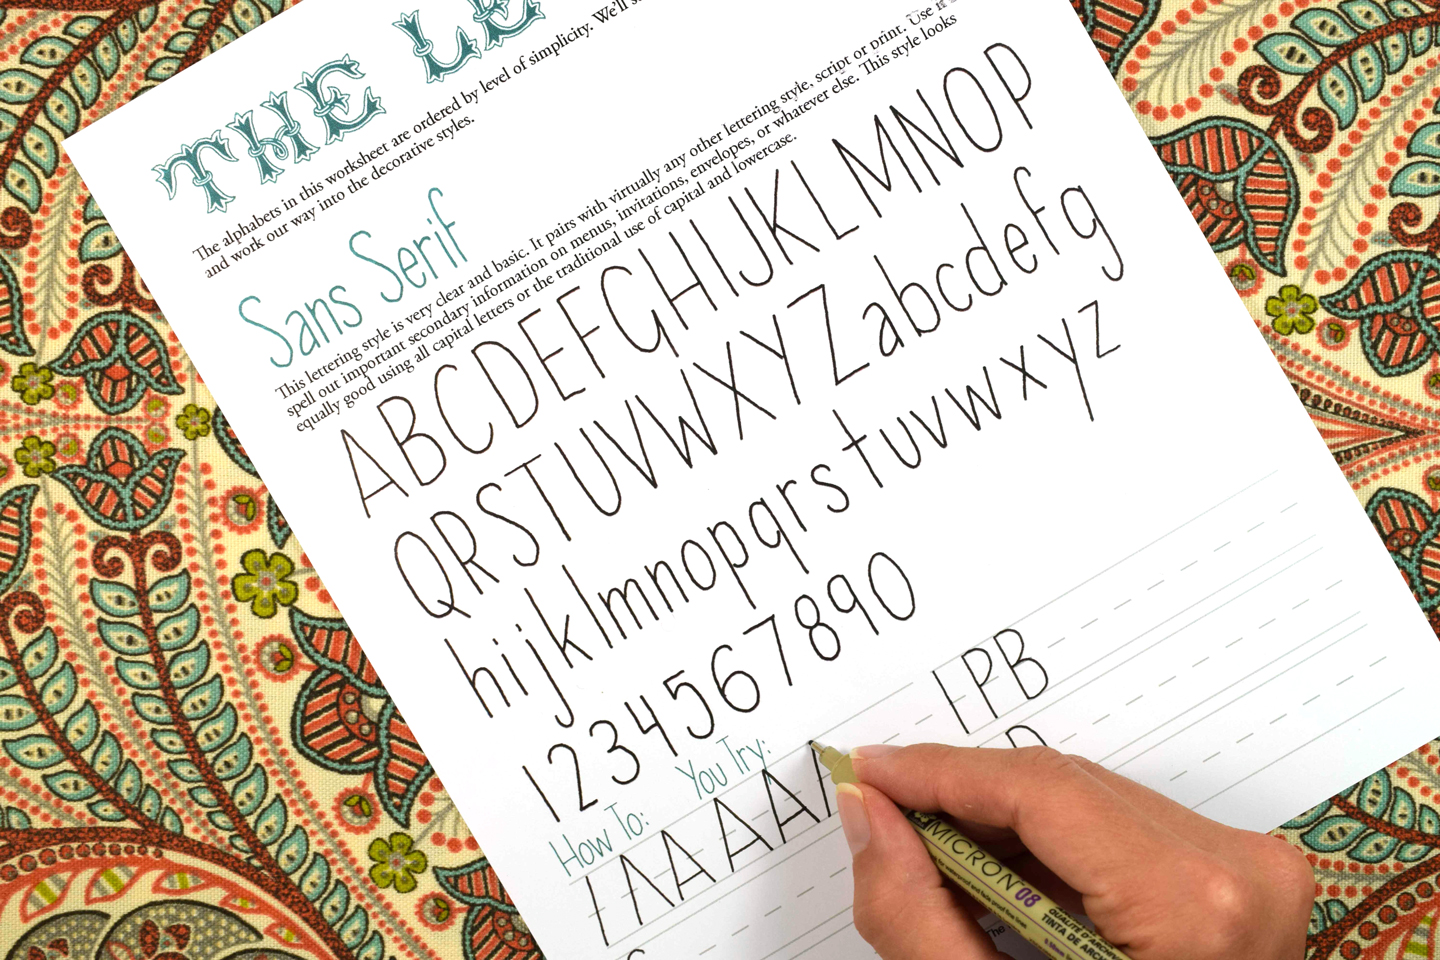 THE LE
The alphabets in this worksheet are ordered by level of simplicity. We'll
and work our way into the decorative styles.
Sans Serif
This lettering style is very clear and basic. It pairs with virtually any other lettering style, script or print. Use it
spell out important secondary information on menus, invitations, envelopes, or whatever else. This style looks
equally good using all capital letters or the traditional use of capital and lowercase.
ABCDEFGHIJKLMNOP
QRSTUVWXYZabcdefg
hijklmnopqrstuvwxyz
1234567890
How To: You Try:
I Λ A A A I P B
MICRON 08